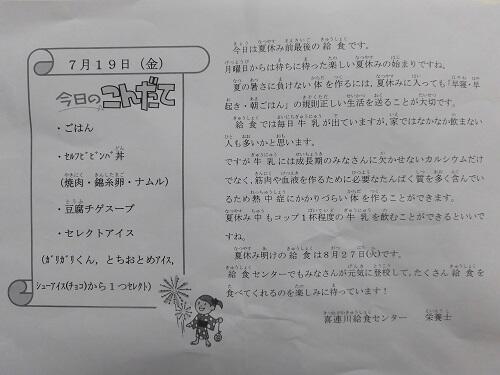 7月19日（金）
今日のこんだて
・ごはん
・セルフビビンバ丼
（焼肉・錦糸卵・ナムル）
・豆腐チゲスープ
・セレクトアイス
（ガリガリくん、とちおとめアイス,
シューアイス(チョコ)から１つセレクト）
今日は夏休み前最後の給食です。
月曜日からは待ちに待った楽しい夏休みの始まりですね。
夏の暑さに負けない体を作るには,夏休みに入っても「早寝・早
起き・朝ごはん」の規則正しい生活を送ることが大切です。
給食では毎日牛乳が出ていますが,家ではなかなか飲まない
人も多いかと思います。
ですが牛乳には成長期のみなさんに欠かせないカルシウムだけ
でなく,筋肉や血液を作るために必要なたんぱく質を多く含んでい
るため熱中症にかかりづらい体を作ることができます。
夏休み中もコップ1杯程度の牛乳を飲むことができるといいで
すね。
夏休み明けの給食は8月27日(火)です。
給食センターでもみなさんが元気に登校して,たくさん給食を
食べてくれるのを楽しみに待っています！
喜連川給食センター　栄養士